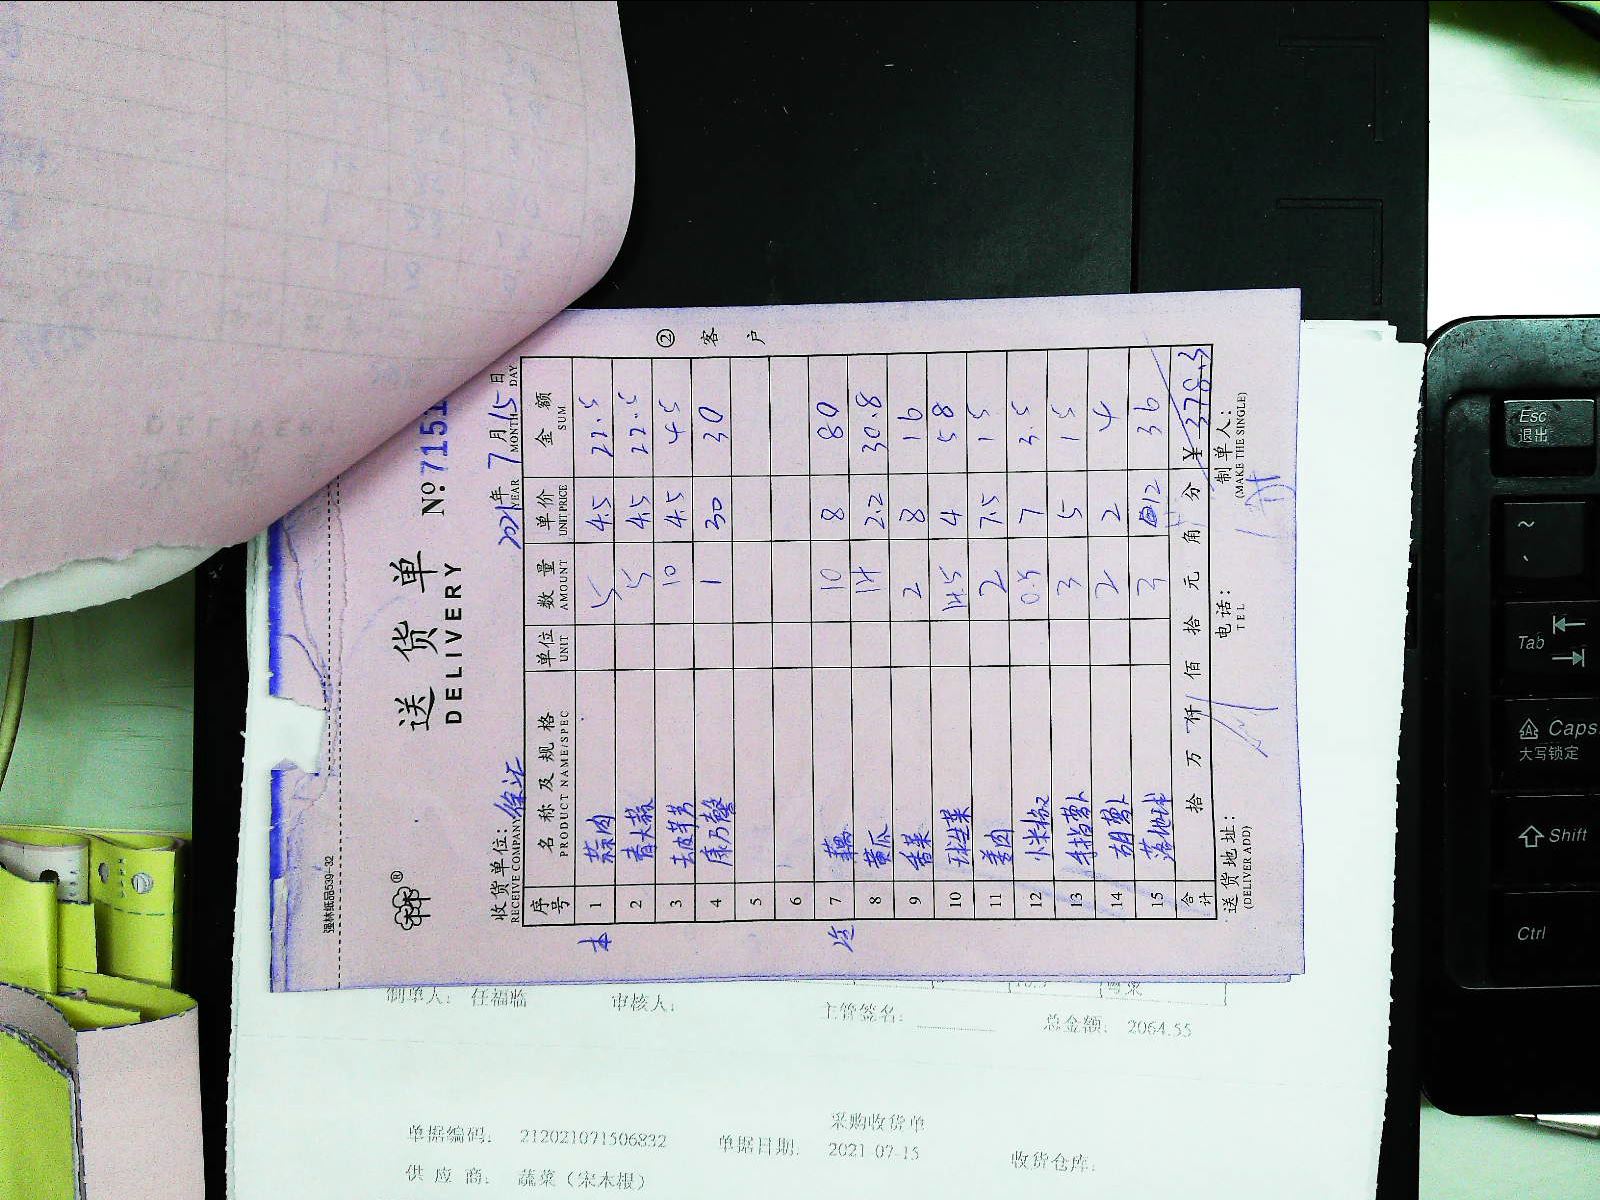 强林纸品539-32
送货单
DELIVERY
No.7151
收货单位: 徐汇
RECEIVE COMPANY
2021年 7月 15日
YEAR MONTH DAY
② 客户
序号 名称及规格 单位 数量 单价 金额
PRODUCT NAME/SPEC UNIT AMOUNT UNIT PRICE SUM
本 1 蒜肉 5 4.5 22.5
2 青大蒜 5 4.5 22.5
3 去皮芋艿 10 4.5 45
4 康乃馨 1 30 30
5
6
7 藕 10 8 80
8 黄瓜 14 2.2 30.8
9 香菜 2 8 16
10 球生菜 14.5 4 58
11 姜肉 2 7.5 15
12 小米椒 0.5 7 3.5
13 手指萝卜 3 5 15
14 胡萝卜 2 2 4
15 落地球 3 12 36
合计 拾 万 仟 佰 拾 元 角 分 ¥ 378.3
送货地址: 电话: 制单人:
(DELIVER ADD) TEL (MAKE THE SINGLE)
制单人: 任福临 审核人: 主管签名: 总金额: 2064.55
采购收货单
单据编码: 212021071506832 单据日期: 2021-07-15 收货仓库:
供应商: 蔬菜(宋木根)
Esc
退出
~
Tab
Caps
大写锁定
Shift
Ctrl